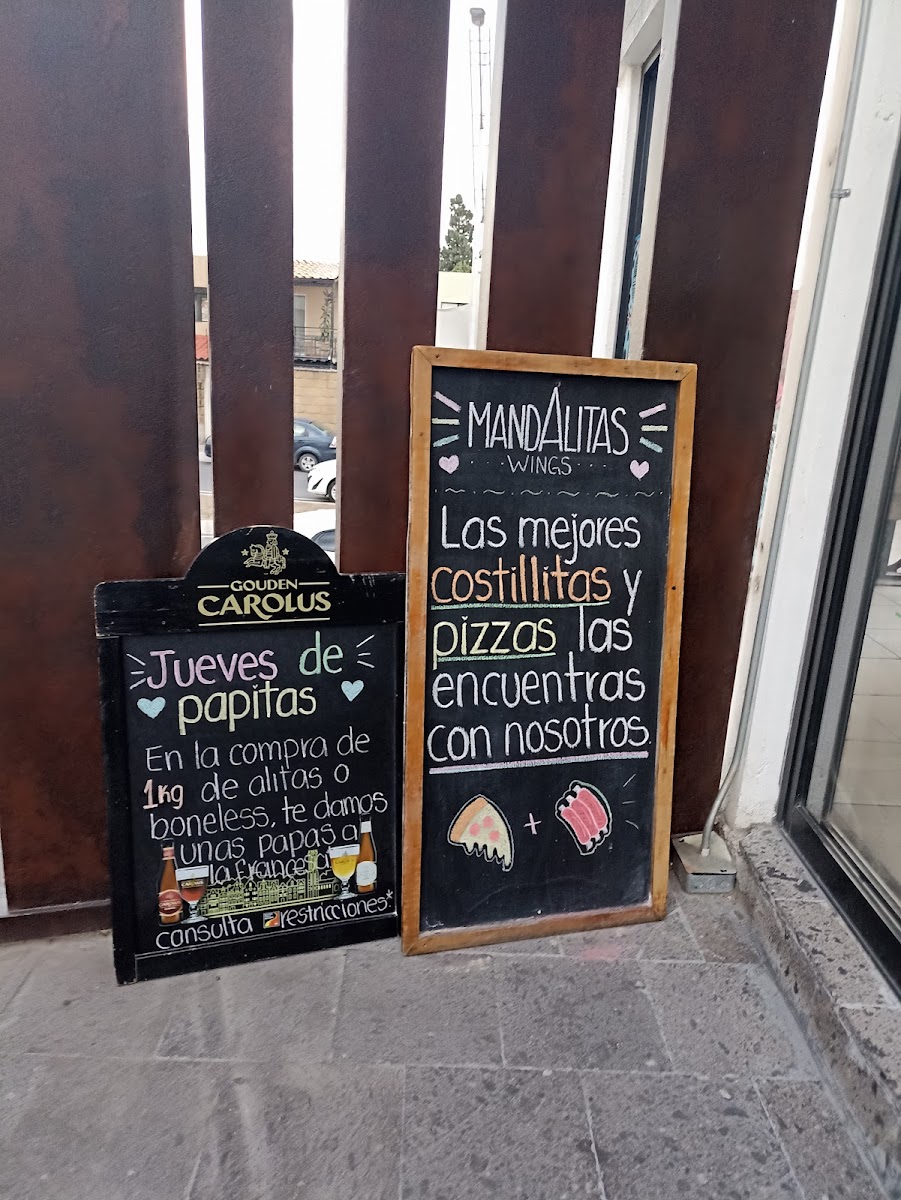 GOUDEN
CAROLUS
Jueves de
papitas
En la compra de
1kg de alitas o
boneless, te damos
unas papas a
la francesa
consulta restricciones*
MANDALITAS
WINGS
Las mejores
costillitas y
pizzas las
encuentras
con nosotros.
+